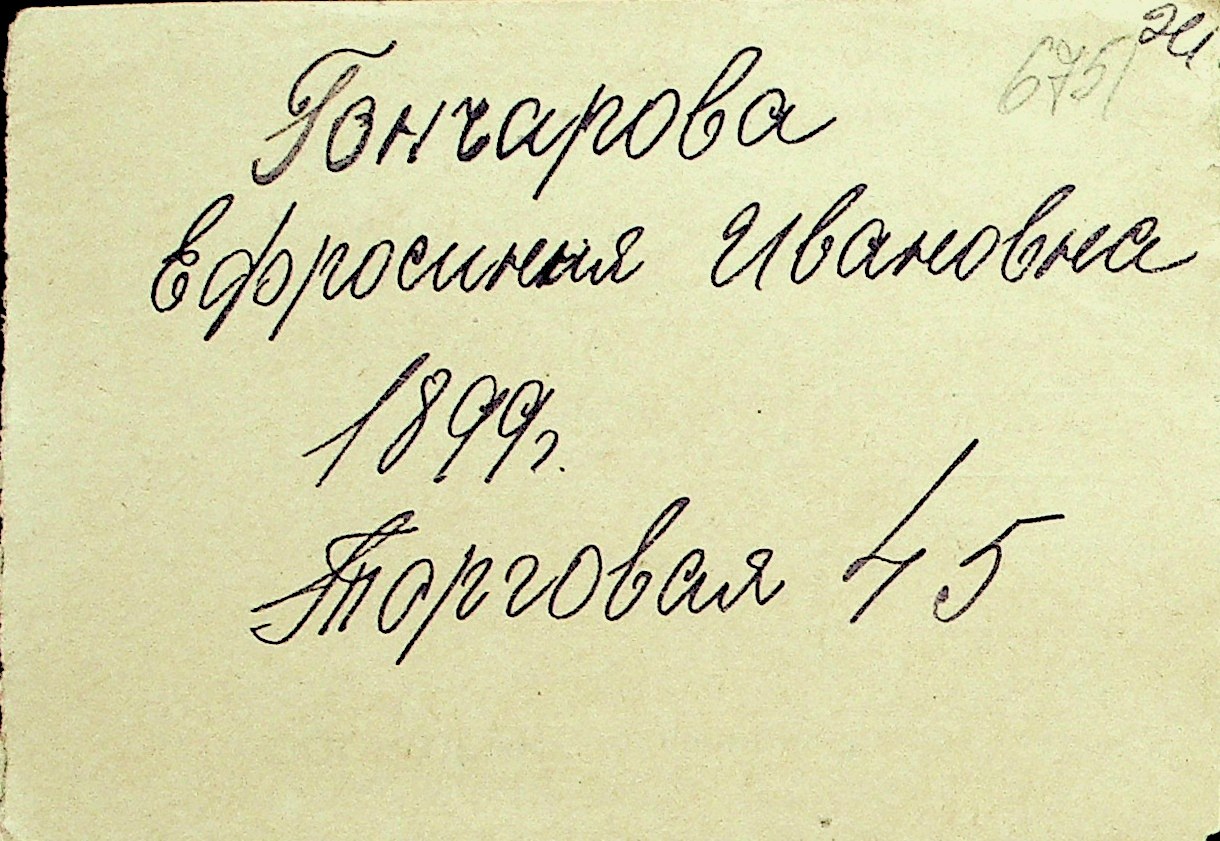 675/
Гончарова
Ефросиния Ивановна
1899г.
Торговая 45